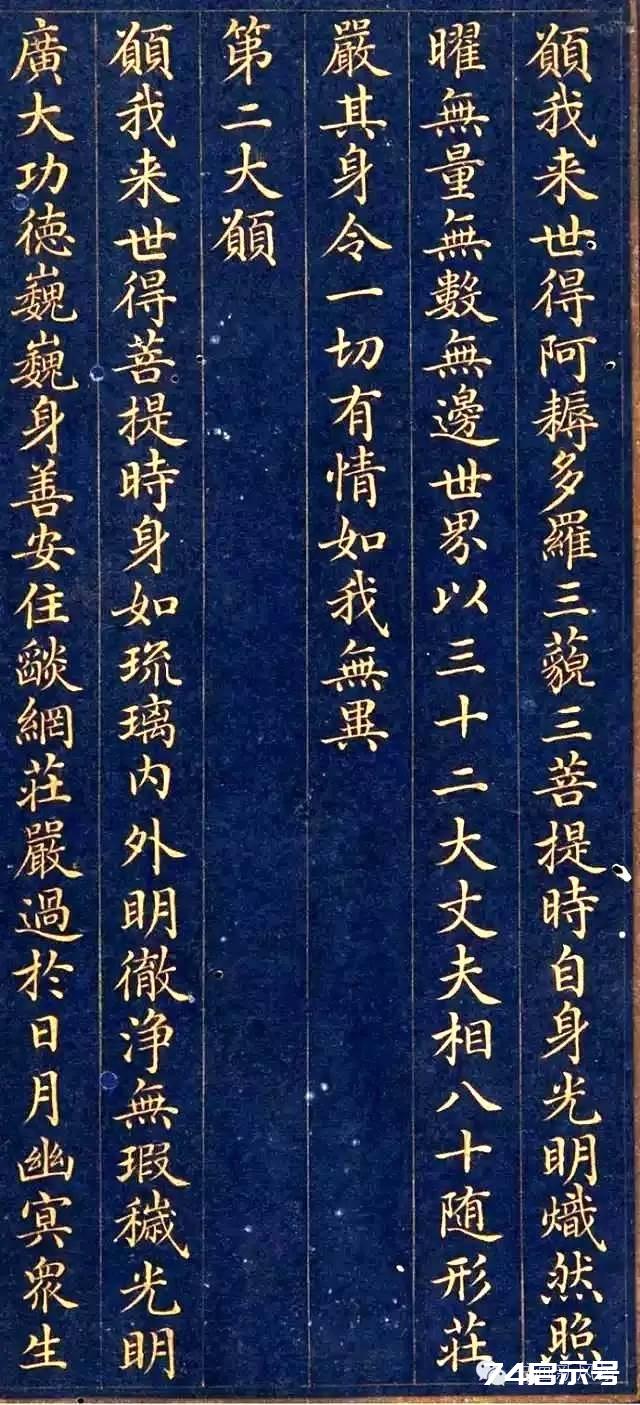 願我来世得阿耨多羅三藐三菩提時自身光明熾然照
曜無量無數無邊世界以三十二大丈夫相八十随形莊
嚴其身令一切有情如我無異
第二大願
願我来世得菩提時身如琉璃内外明徹浄無瑕穢光明
廣大功徳巍巍身善安住燄網莊嚴過於日月幽冥衆生
74启示号